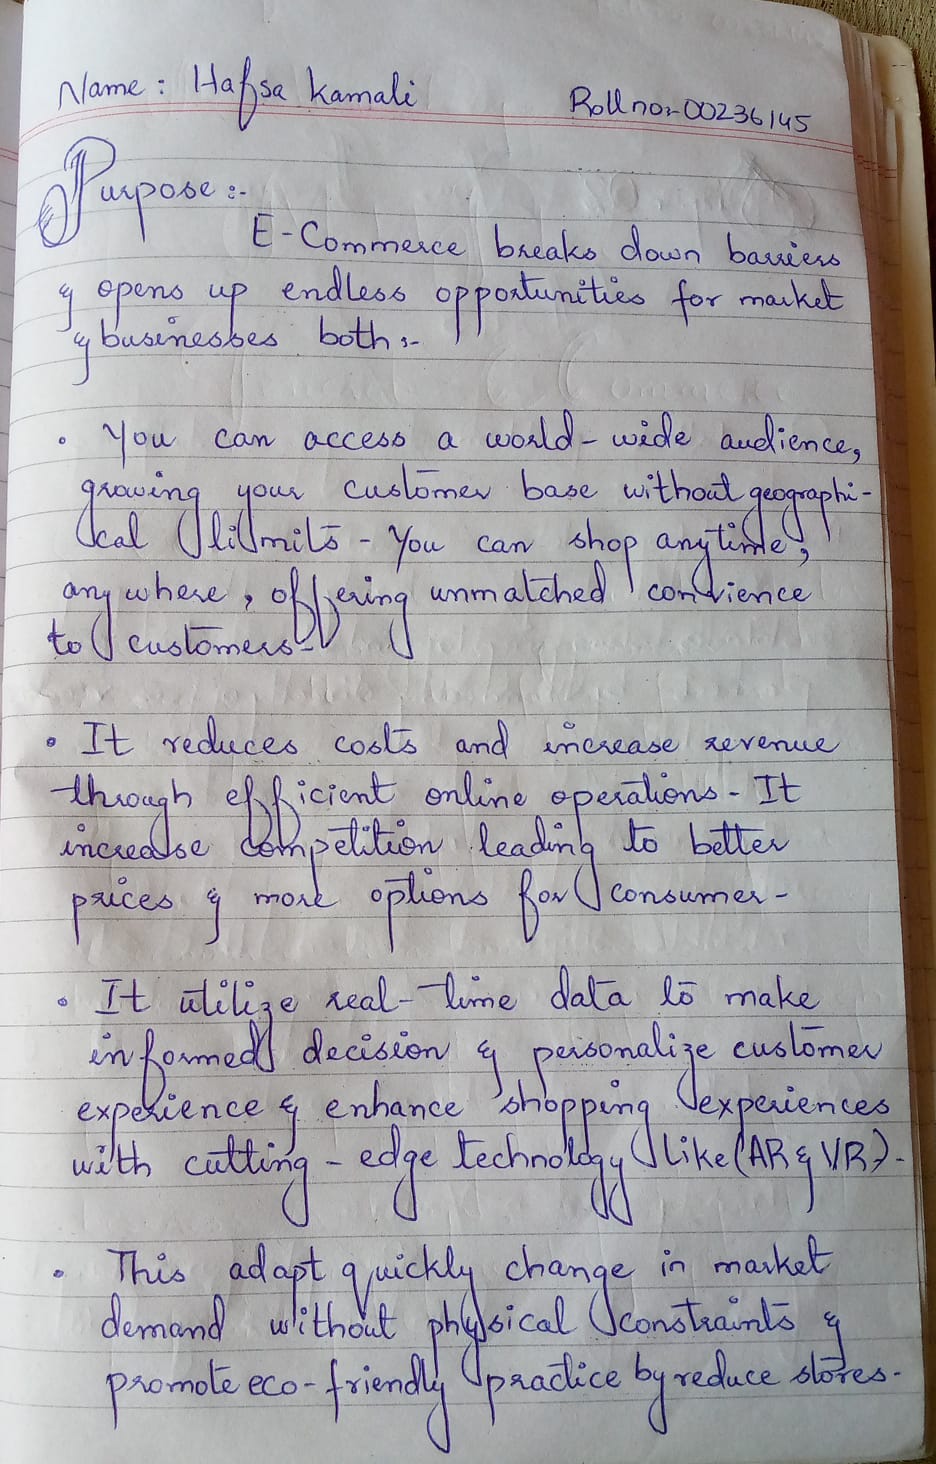 Name : Hafsa Kamali
Roll no:- 00236145
Purpose :-
E-Commerce breaks down barriers
& opens up endless opportunities for market
& businesses both :-
• You can access a world-wide audience,
growing your customer base without geographi-
cal limits - You can shop anytime,
anywhere, offering unmatched convience
to customers -
• It reduces costs and increase revenue
through efficient online operations - It
increase competition leading to better
prices & more options for consumer -
• It utilize real-time data to make
informed decision & personalize customer
experience & enhance shopping experiences
with cutting-edge technology like (AR & VR) -
• This adapt quickly change in market
demand without physical constraints &
promote eco-friendly practice by reduce stores -